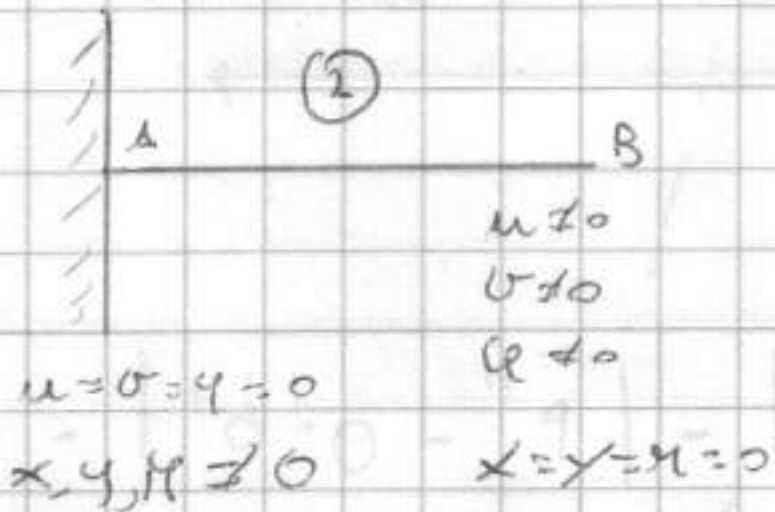 2
A B
u ≠ 0
v ≠ 0
φ ≠ 0
u = v = φ = 0
x, y, M ≠ 0 x = y = M = 0